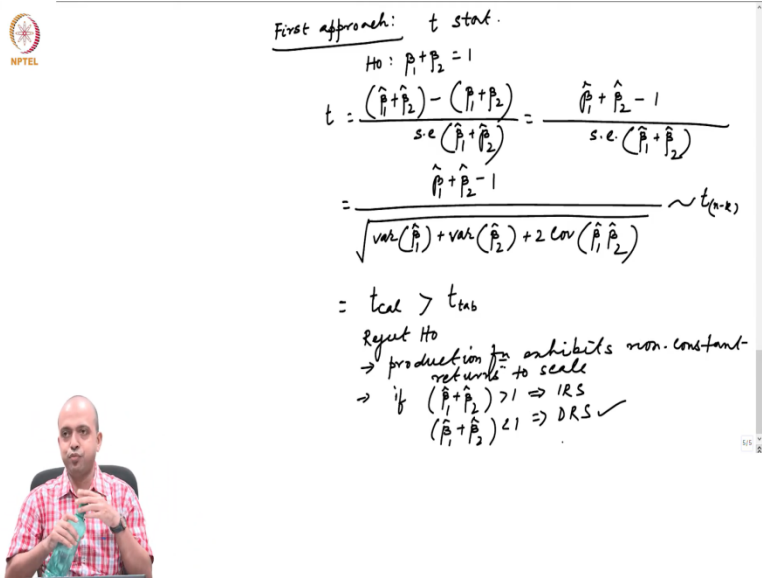 NPTEL
First approach: t stat.
H0: β₁+β₂ = 1
t = ((β̂₁+β̂₂) − (β₁+β₂)) / s.e(β̂₁+β̂₂) = (β̂₁+β̂₂−1) / s.e.(β̂₁+β̂₂)
= (β̂₁+β̂₂−1) / √(var(β̂₁)+var(β̂₂)+2 cov(β̂₁β̂₂)) ~ t(n-k)
= tcal > ttab
Reject H0
→ production fn exhibits non-constant-
returns to scale
→ if (β̂₁+β̂₂) >1 ⇒ IRS
(β̂₁+β̂₂) <1 ⇒ DRS ✓
5/5